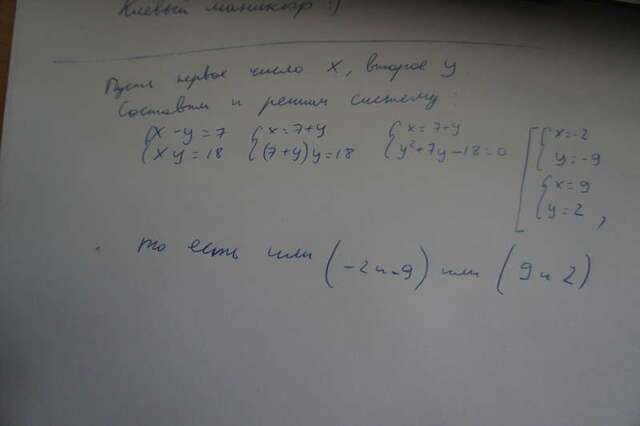 Клевый маникюр :)
Пусть первое число x, второе y
Составим и решим систему:
{x - y = 7 {x = 7 + y {x = 7 + y [{x = -2
{xy = 18 {(7 + y)y = 18 {y² + 7y - 18 = 0 {y = -9
{x = 9
{y = 2,
то есть или (-2 и -9) или (9 и 2)